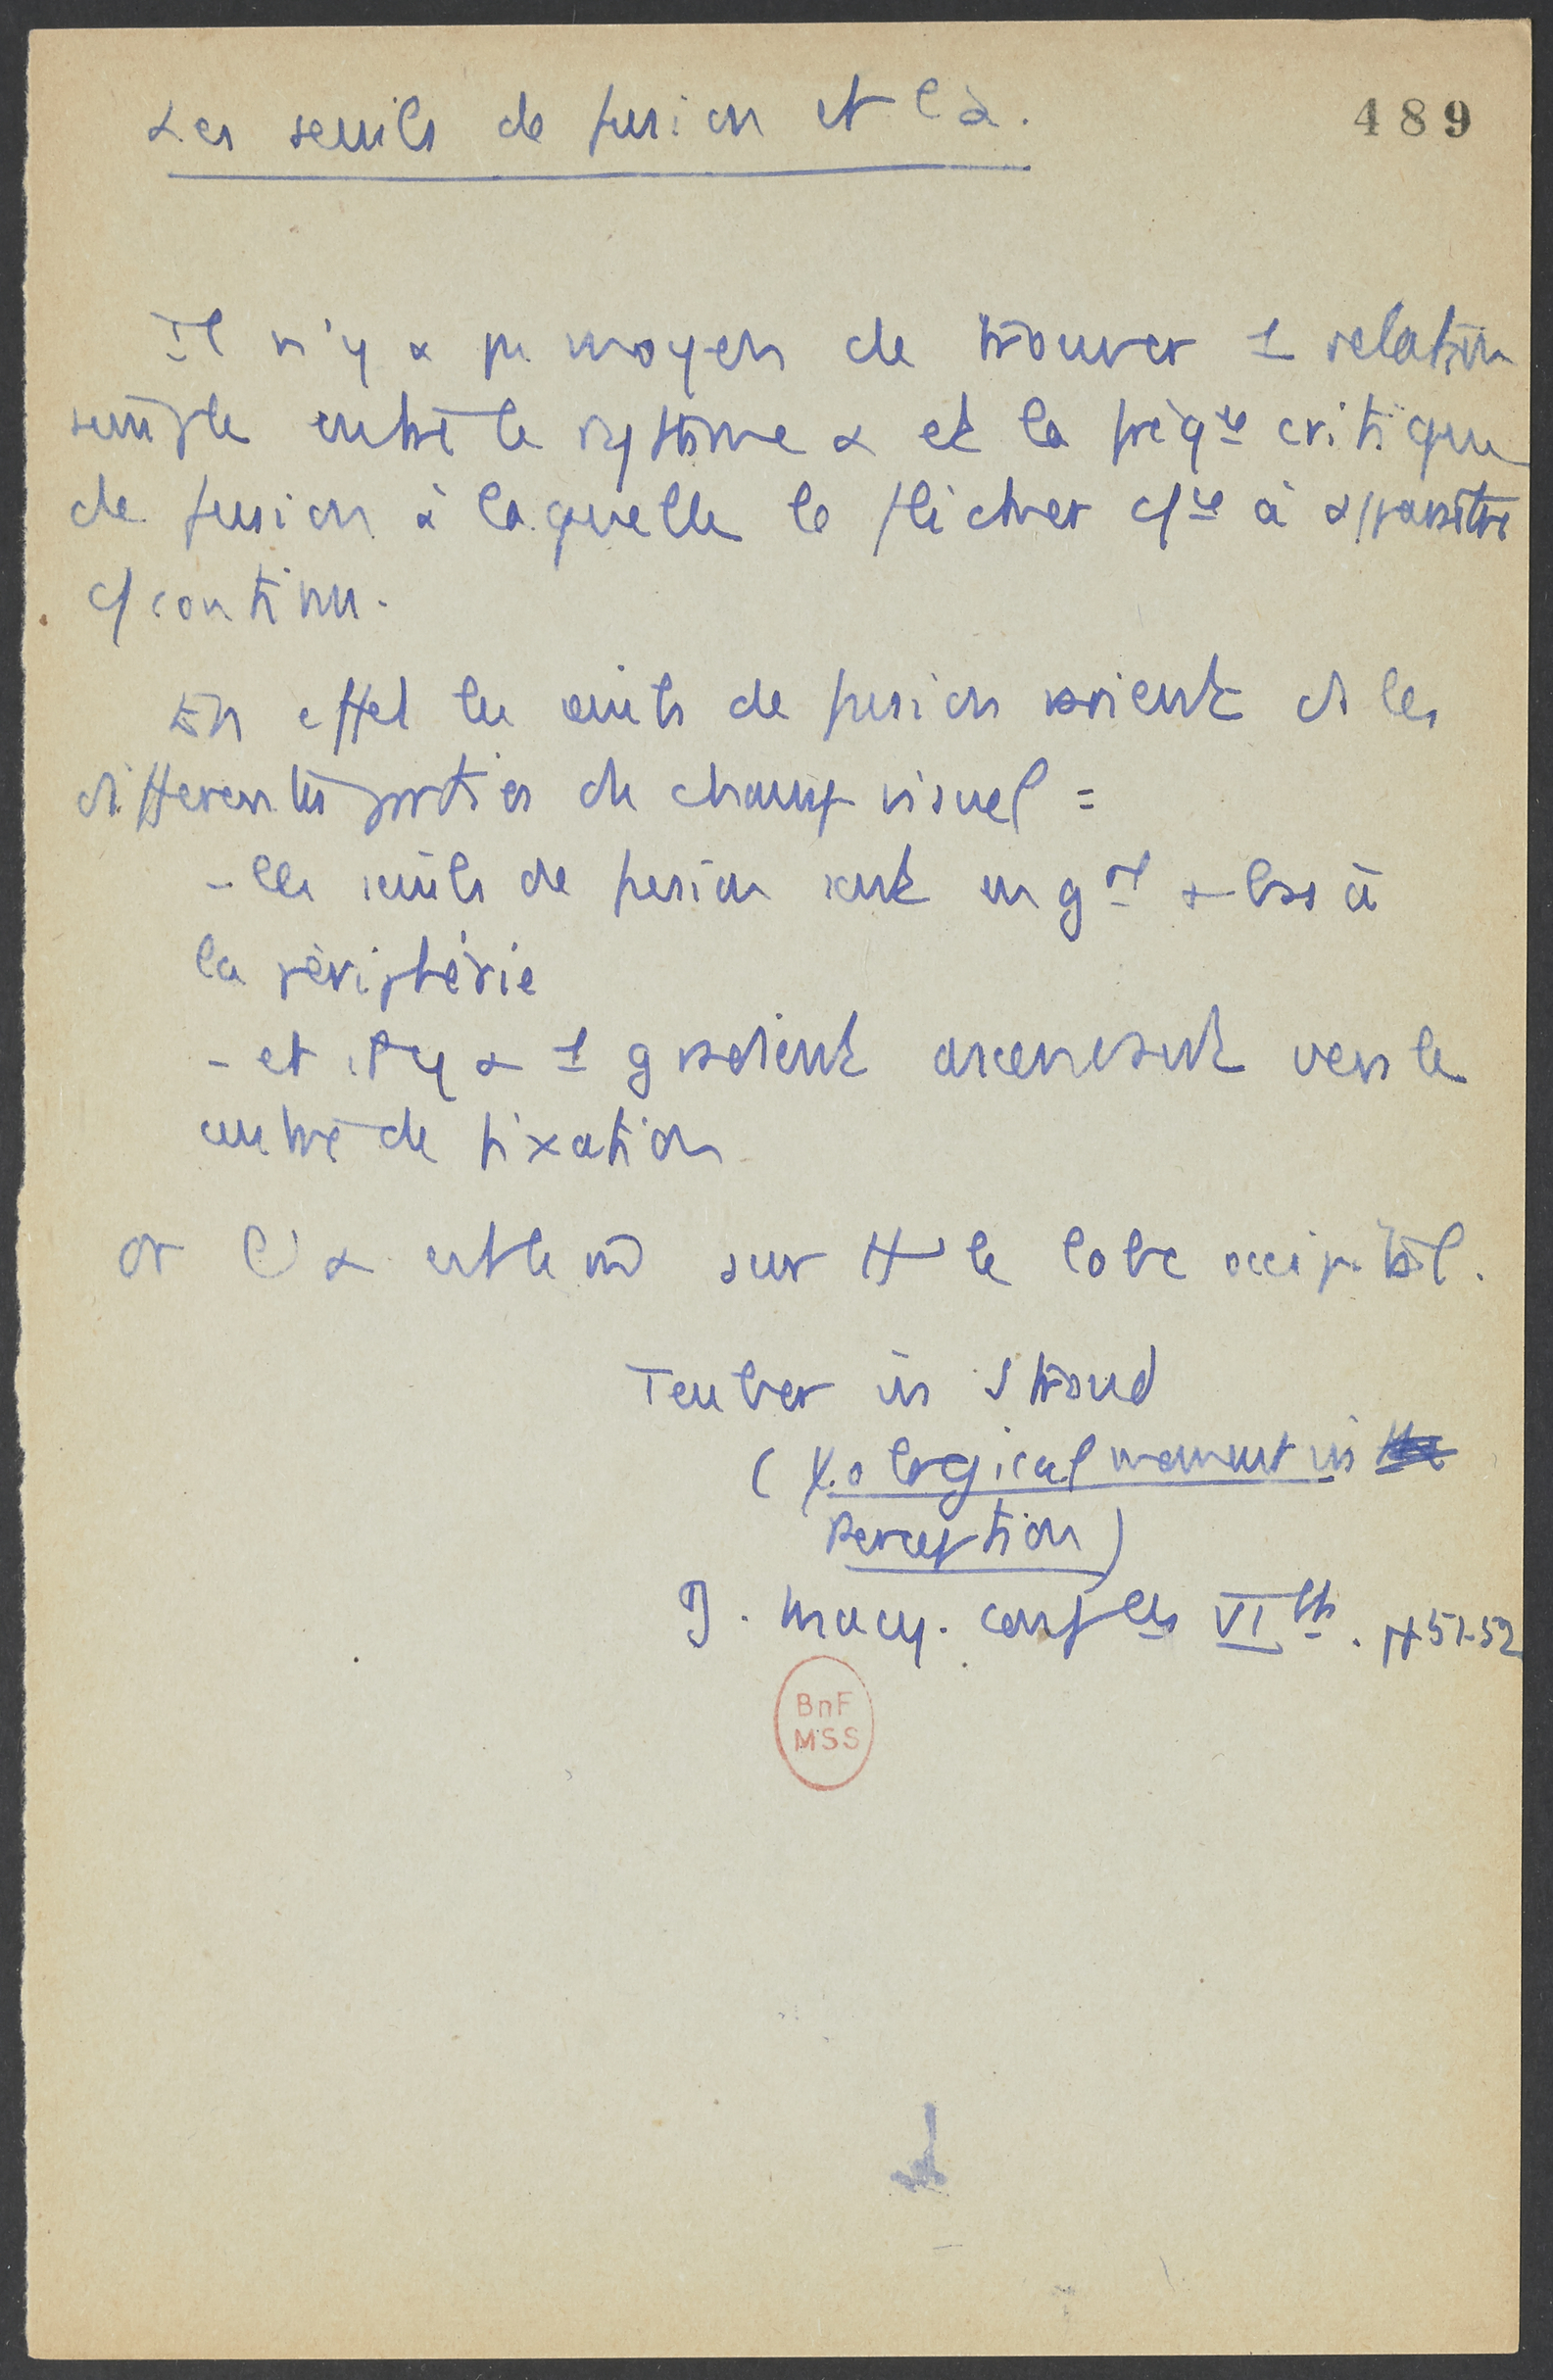 Les seuils de fusion et l'α.
489
Il n'y a pas moyen de trouver 1 relation
simple entre le rythme α et la fréq^ce critique
de fusion à laquelle le flicker c/^ce à apparaître
c/ continu.
En effet les seuils de fusion varient ds les
différentes parties du champ visuel =
- les seuils de fusion sont en g^al + bas à
la périphérie
- et il y a 1 gradient ascendant vers le
centre de fixation
or l'α est le m̂ sur tt le lobe occipital.
Teuber in Stroud
(ψological moment in
Perception)
J. Macy. conf^ces VI^th. p 51-52
BnF
MSS